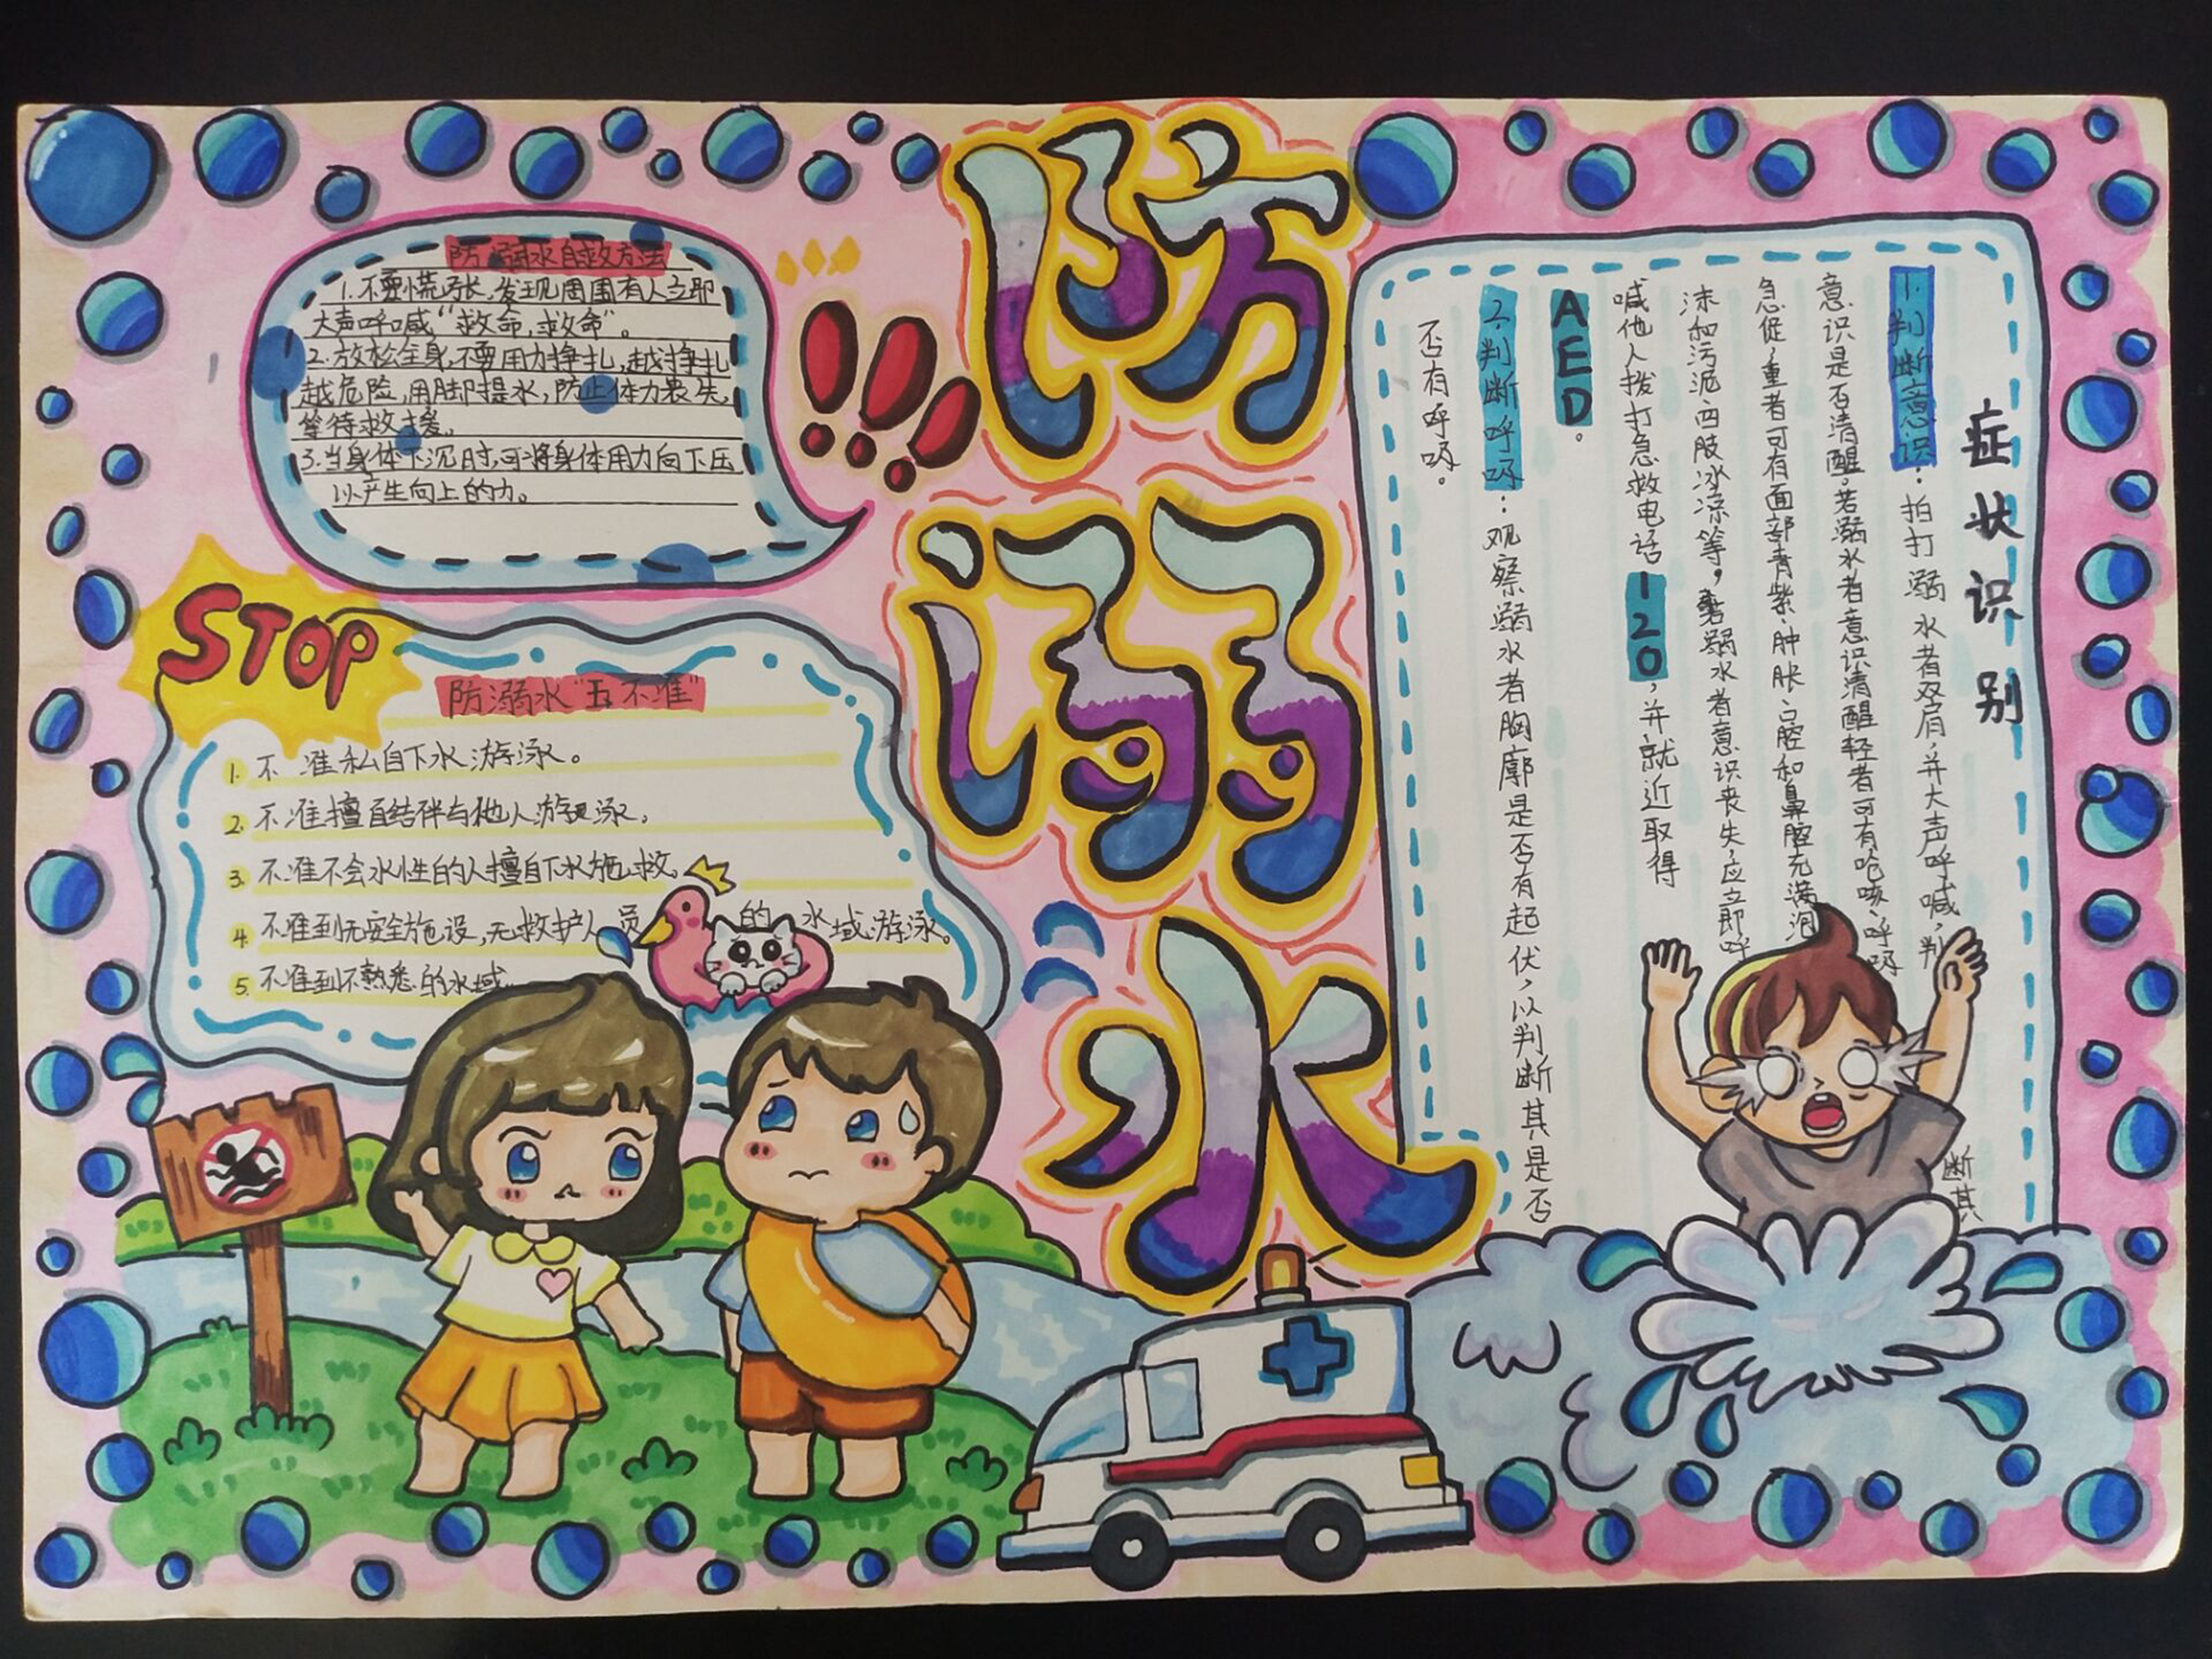 防溺水
防溺水自救方法
1.不要慌张,发现周围有人立即
大声呼喊“救命,救命”。
2.放松全身,不要用力挣扎,越挣扎
越危险,用脚提水,防止体力丧失,
等待救援。
3.当身体下沉时,可将身体用力向下压,
以产生向上的力。
STOP
防溺水“五不准”
1.不准私自下水游泳。
2.不准擅自结伴与他人游泳。
3.不准不会水性的人擅自下水施救。
4.不准到无安全施设,无救护人员的水域游泳。
5.不准到不熟悉的水域
症状识别
1.判断意识:拍打溺水者双肩,并大声呼喊,判断其
意识是否清醒。若溺水者意识清醒轻者可有呛咳、呼吸
急促,重者可有面部青紫、肿胀、口腔和鼻腔充满泡
沫和污泥、四肢冰凉等,若溺水者意识丧失,应立即呼
喊他人拨打急救电话120,并就近取得
AED。
2.判断呼吸:观察溺水者胸廓是否有起伏,以判断其是否
否有呼吸。